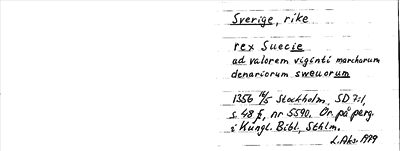 Sverige, rike
rex Suecie
ad valorem viginti marcharum
denariorum sweuorum
1356 16/5 Stockholm, SD 7:1,
s. 48 f, nr 5590. Or. på perg.
i Kungl. Bibl, Sthlm.
L.Aks. 1979